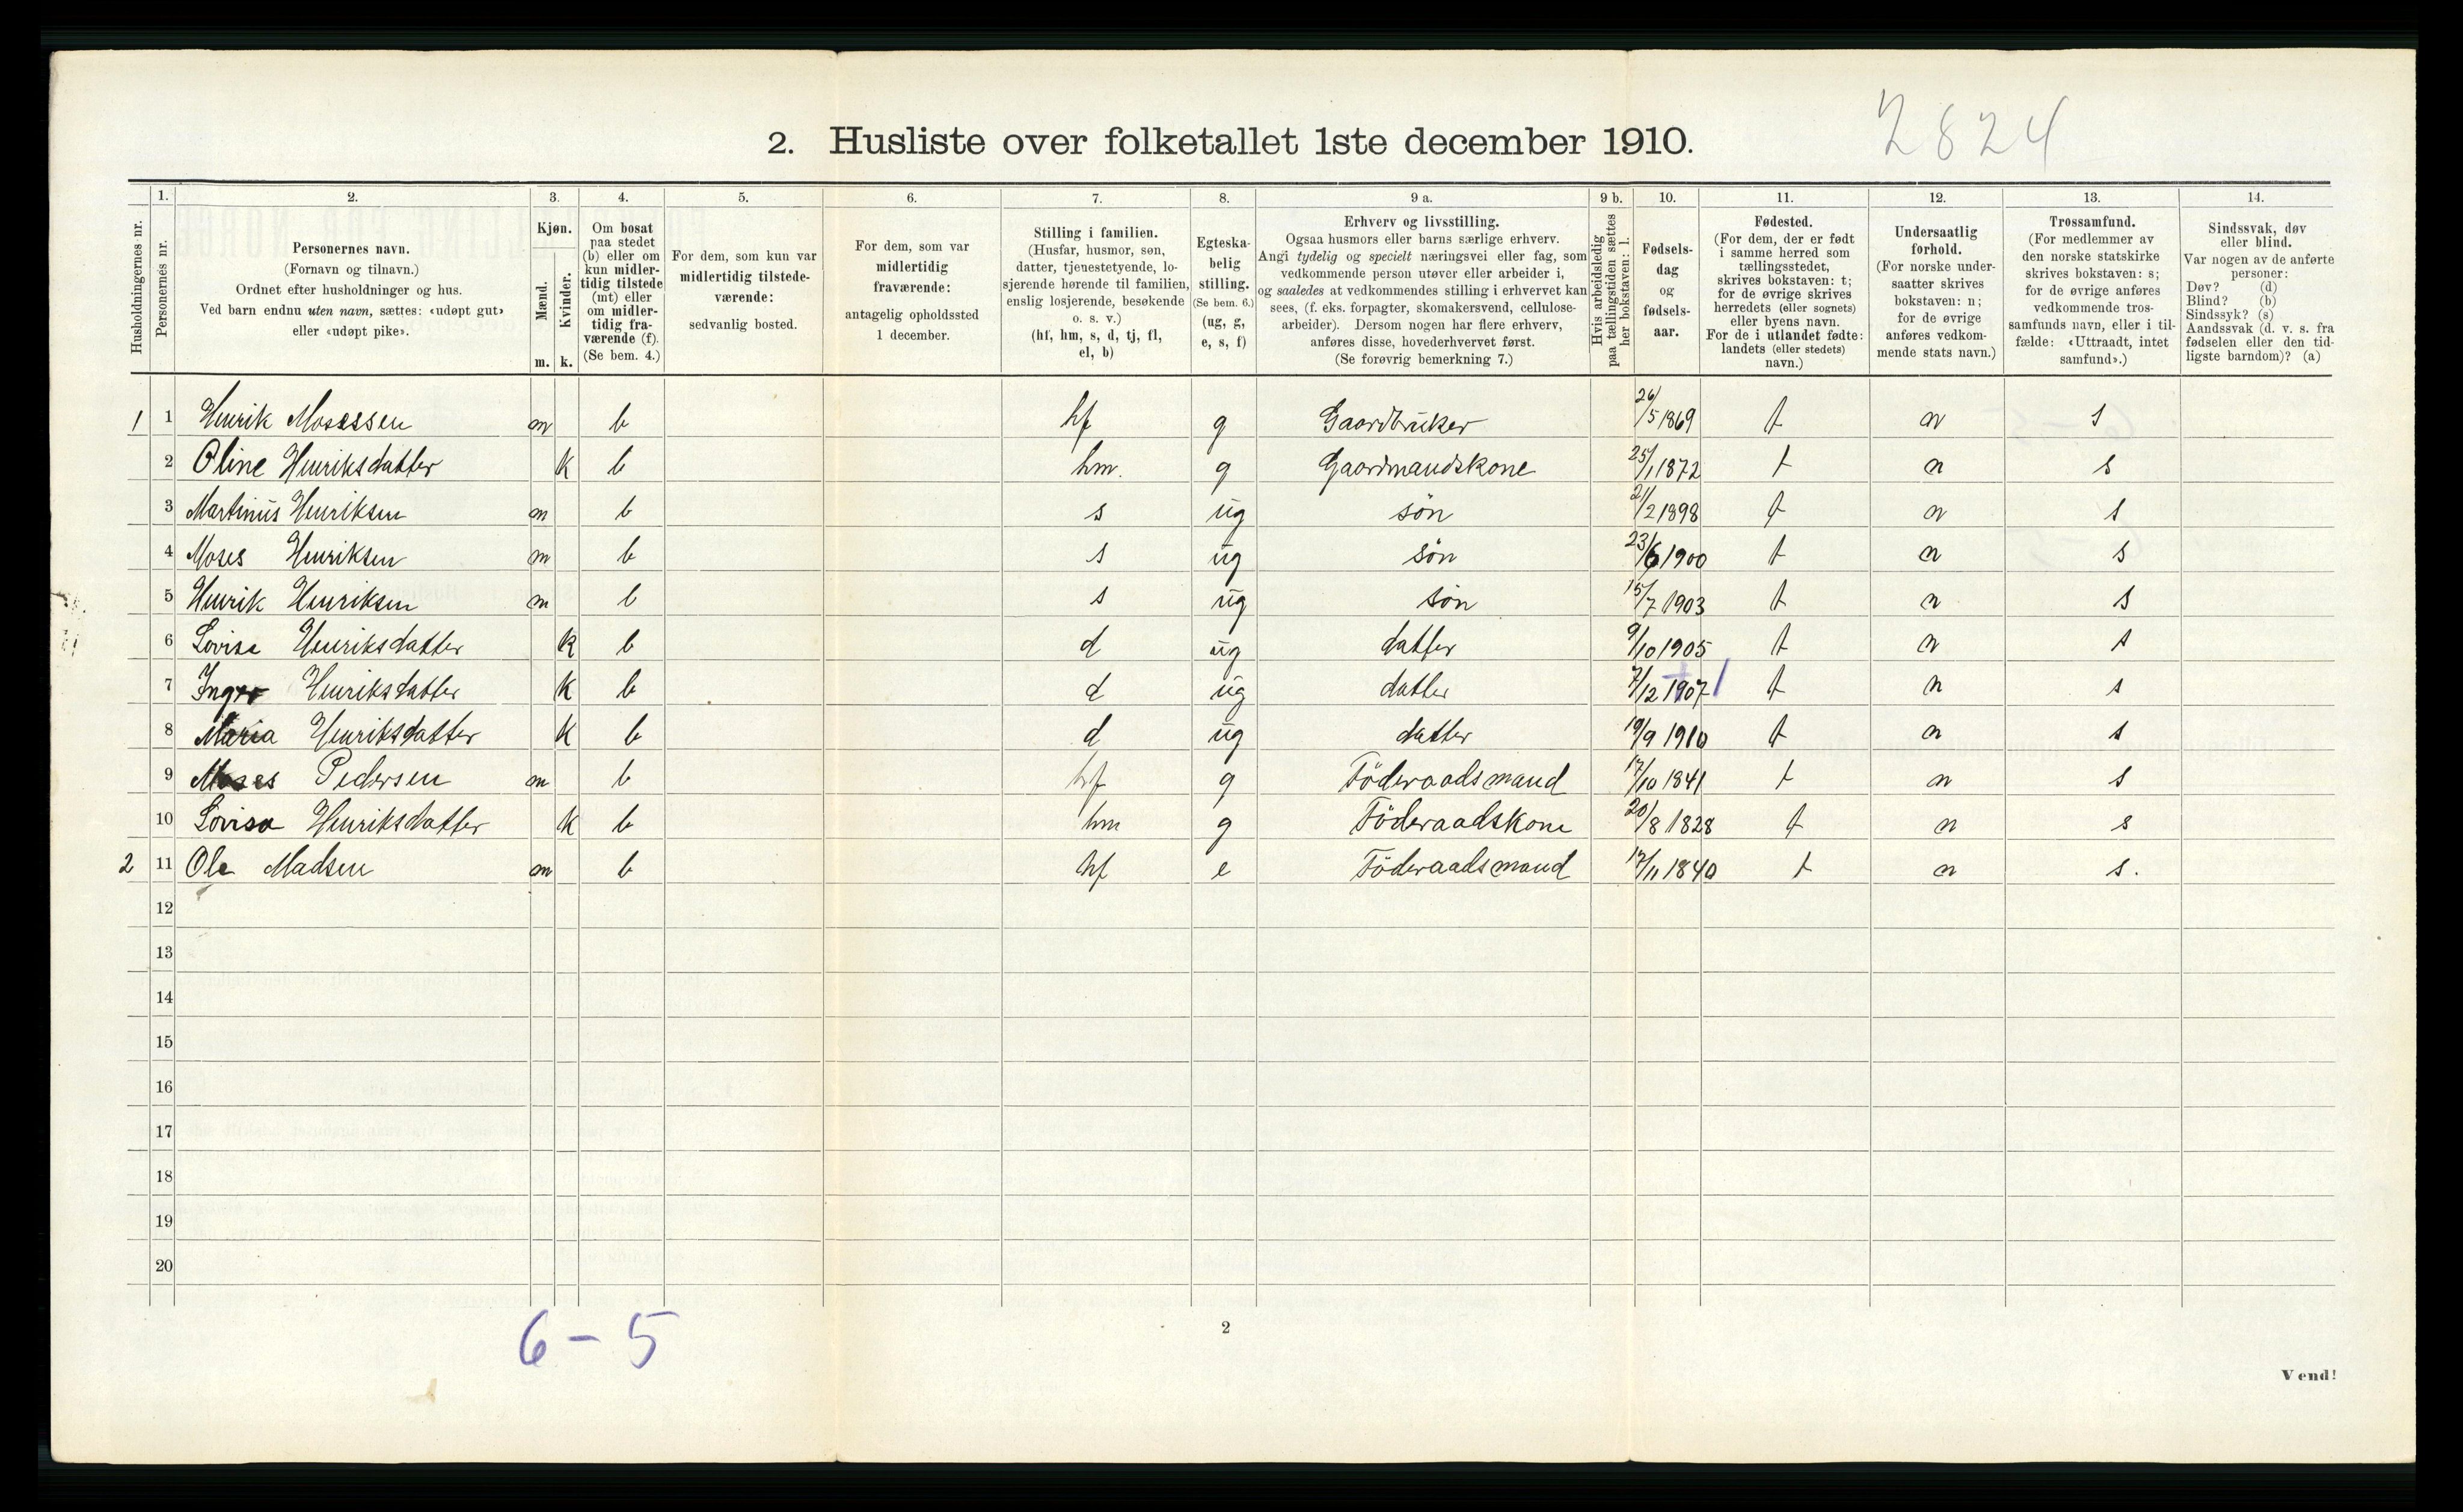 2824
2. Husliste over folketallet 1ste december 1910.
1. 2. 3. 4. 5. 6. 7. 8. 9 a. 9 b. 10. 11. 12. 13. 14.
Husholdningernes nr.
Personernes nr.
Personernes navn.
(Fornavn og tilnavn.)
Ordnet efter husholdninger og hus.
Ved barn endnu uten navn, sættes: «udøpt gut»
eller «udøpt pike».
Kjøn.
Mænd.
Kvinder.
m. k.
Om bosat
paa stedet
(b) eller om
kun midler-
tidig tilstede
(mt) eller
om midler-
tidig fra-
værende (f).
(Se bem. 4.)
For dem, som kun var
midlertidig tilstede-
værende:
sedvanlig bosted.
For dem, som var
midlertidig
fraværende:
antagelig opholdssted
1 december.
Stilling i familien.
(Husfar, husmor, søn,
datter, tjenestetyende, lo-
sjerende hørende til familien,
enslig losjerende, besøkende
o. s. v.)
(hf, hm, s, d, tj, fl,
el, b)
Egteska-
belig
stilling.
(Se bem. 6.)
(ug, g,
e, s, f)
Erhverv og livsstilling.
Ogsaa husmors eller barns særlige erhverv.
Angi tydelig og specielt næringsvei eller fag, som
vedkommende person utøver eller arbeider i,
og saaledes at vedkommendes stilling i erhvervet kan
sees, (f. eks. forpagter, skomakersvend, cellulose-
arbeider). Dersom nogen har flere erhverv,
anføres disse, hovederhvervet først.
(Se forøvrig bemerkning 7.)
Hvis arbeidsledig
paa tællingstiden sættes
her bokstaven: l.
Fødsels-
dag
og
fødsels-
aar.
Fødested.
(For dem, der er født
i samme herred som
tællingsstedet,
skrives bokstaven: t;
for de øvrige skrives
herredets (eller sognets)
eller byens navn.
For de i utlandet fødte:
landets (eller stedets)
navn.)
Undersaatlig
forhold.
(For norske under-
saatter skrives
bokstaven: n;
for de øvrige
anføres vedkom-
mende stats navn.)
Trossamfund.
(For medlemmer av
den norske statskirke
skrives bokstaven: s;
for de øvrige anføres
vedkommende tros-
samfunds navn, eller i til-
fælde: «Uttraadt, intet
samfund».)
Sindssvak, døv
eller blind.
Var nogen av de anførte
personer:
Døv? (d)
Blind? (b)
Sindssyk? (s)
Aandssvak (d. v. s. fra
fødselen eller den tid-
ligste barndom)? (a)
1 1 Henrik Mosessen m b hf g Gaardbruker 26/5 1869 t n s
2 Oline Henriksdatter k b hm. g Gaardmandskone 25/1 1872 t n s
3 Martinus Henriksen m b s ug søn 21/2 1898 t n s
4 Moses Henriksen m b s ug søn 23/6 1900 t n s
5 Henrik Henriksen m b s ug søn 15/7 1903 t n s
6 Lovise Henriksdatter k b d ug datter 9/10 1905 t n s
7 Henriksdatter k b d ug datter 7/12 1907 t n s
8 Maria Henriksdatter k b d ug datter 19/9 1910 t n s
9 Moses Pedersen m b hf g Föderaadsmand 17/10 1841 t n s
10 Lovisa Henriksdatter k b hm g Föderaadskone 20/8 1828 t n s
2 11 Ole Madsen m b hf e Föderaadsmand 17/11 1840 t n s.
12
13
14
15
16
17
18
19
20
6 - 5
2
Vend!